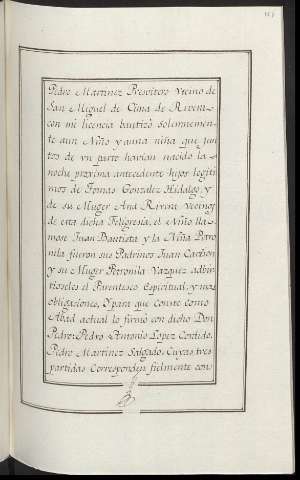 Pedro Martinez Presvitero Vecino de
San Miguel de Cima de Rivera
con mi licencia bautizó solemnemen-
te aun Niño y auna niña que jun
tos de vn parto havian nacido la
noche proxima antecedente hijos legiti
mos de Tomas Gonzalez Hidalgo, y
de su Muger Ana Rivera vecinos
de esta dicha Feligresia, el Niño lla
mose Juan Bautista y la Niña Petro
nila fueron sus Padrinos Juan
y su Muger Petronila Vazquez adbir
tioseles el Parentesco Espiritual, y mas
obligaciones, Y para que Conste como
Abad actual lo firmo con dicho Don
Pedro: Pedro Antonio Lopez
Pedro Martinez Salgado: Cuyas tres
partidas Corresponden fielmente con